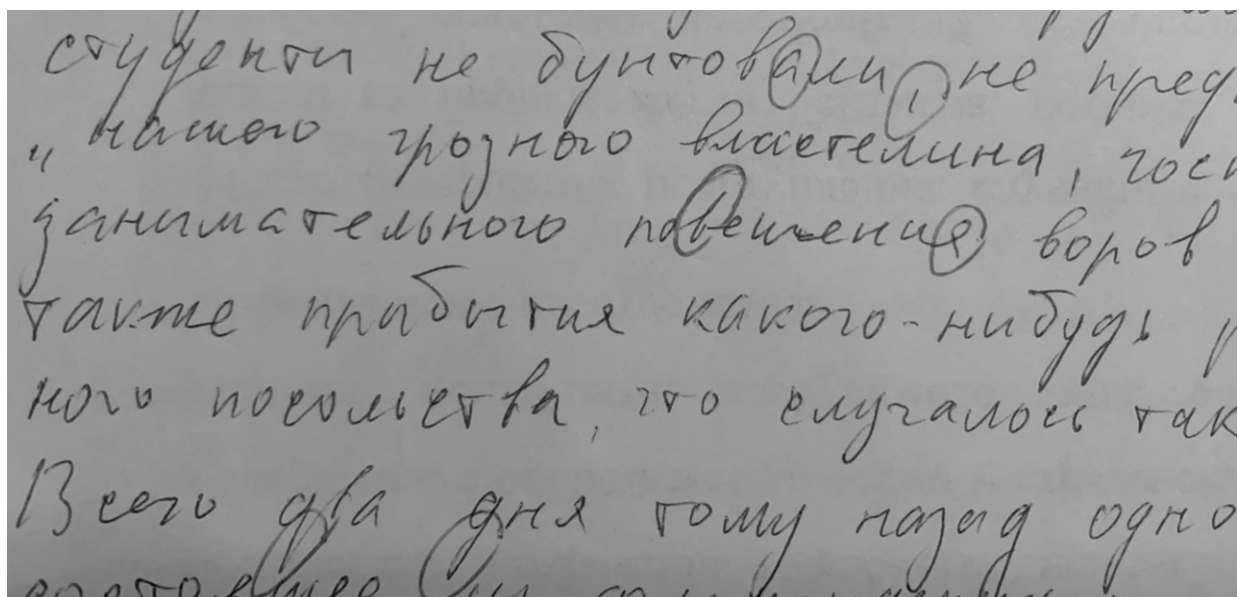 студенти не бунтовали, не пред
„нашого грозного властелина, гос
занимательного повешения воров
также прибытия какого-нибудь
ного посольства, что случалось так
Всего два дня тому назад одно